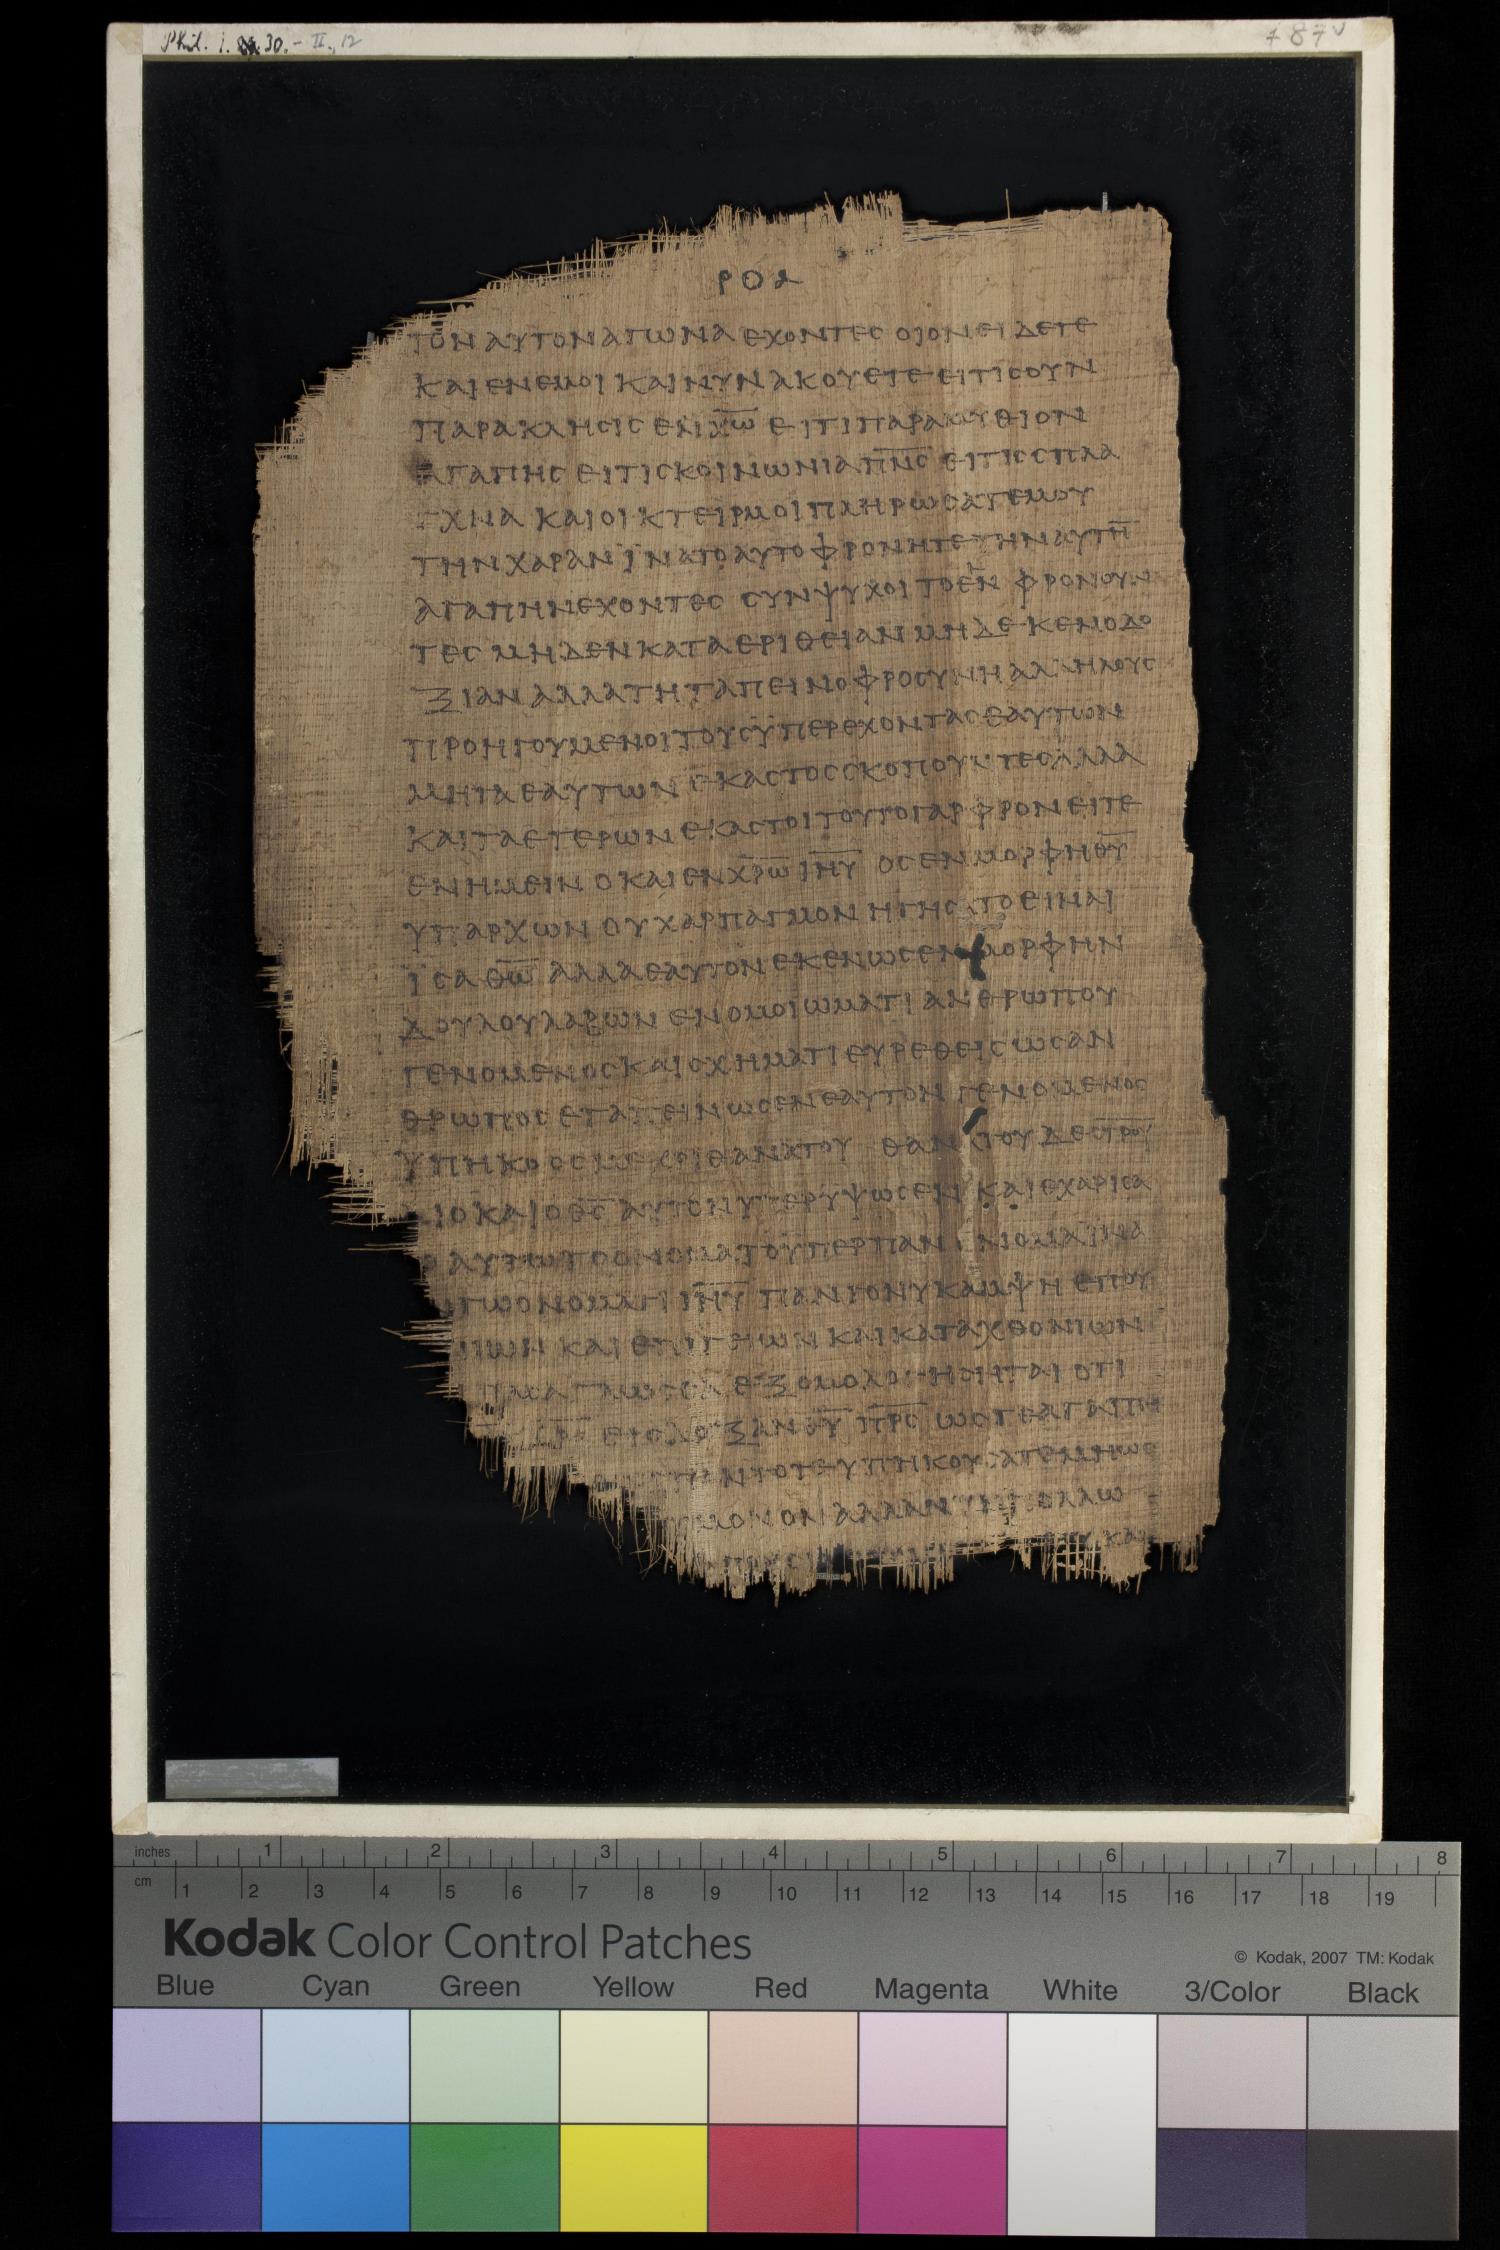 Phil. 1. 30. - II., 12
787v
ΡΟΑ
ΤΟΝ ΑΥΤΟΝ ΑΓΩΝΑ ΕΧΟΝΤΕΣ ΟΙΟΝ ΕΙΔΕΤΕ
ΚΑΙ ΕΝ ΕΜΟΙ ΚΑΙ ΝΥΝ ΑΚΟΥΕΤΕ ΕΙ ΤΙΣ ΟΥΝ
ΠΑΡΑΚΛΗΣΙΣ ΕΝ Χ̅Ω̅ ΕΙ ΤΙ ΠΑΡΑΜΥΘΙΟΝ
ΑΓΑΠΗΣ ΕΙ ΤΙΣ ΚΟΙΝΩΝΙΑ Π̅Ν̅Σ̅ ΕΙ ΤΙΣ ΣΠΛΑ
ΓΧΝΑ ΚΑΙ ΟΙΚΤΕΙΡΜΟΙ ΠΛΗΡΩΣΑΤΕ ΜΟΥ
ΤΗΝ ΧΑΡΑΝ ΪΝΑ ΤΟ ΑΥΤΟ ΦΡΟΝΗΤΕ ΤΗΝ ΑΥΤΗ̅
ΑΓΑΠΗΝ ΕΧΟΝΤΕΣ ΣΥΝΨΥΧΟΙ ΤΟ ΕΝ ΦΡΟΝΟΥΝ
ΤΕΣ ΜΗΔΕΝ ΚΑΤΑ ΕΡΙΘΕΙΑΝ ΜΗΔΕ ΚΕΝΟΔΟ
ΞΙΑΝ ΑΛΛΑ ΤΗ ΤΑΠΕΙΝΟΦΡΟΣΥΝΗ ΑΛΛΗΛΟΥΣ
ΠΡΟΗΓΟΥΜΕΝΟΙ ΤΟΥΣ ΫΠΕΡΕΧΟΝΤΑΣ ΕΑΥΤΩΝ
ΜΗ ΤΑ ΕΑΥΤΩΝ ΕΚΑΣΤΟΣ ΣΚΟΠΟΥΝΤΕΣ ΑΛΛΑ
ΚΑΙ ΤΑ ΕΤΕΡΩΝ ΕΚΑΣΤΟΙ ΤΟΥΤΟ ΓΑΡ ΦΡΟΝΕΙΤΕ
ΕΝ ΗΜΕΙΝ Ο ΚΑΙ ΕΝ Χ̅Ρ̅Ω̅ Ι̅Η̅Υ̅ ΟΣ ΕΝ ΜΟΡΦΗ Θ̅Υ̅
ΥΠΑΡΧΩΝ ΟΥΧ ΑΡΠΑΓΜΟΝ ΗΓΗΣΑΤΟ ΕΙΝΑΙ
ΪΣΑ Θ̅Ω̅ ΑΛΛΑ ΕΑΥΤΟΝ ΕΚΕΝΩΣΕΝ ΜΟΡΦΗΝ
ΔΟΥΛΟΥ ΛΑΒΩΝ ΕΝ ΟΜΟΙΩΜΑΤΙ ΑΝΘΡΩΠΟΥ
ΓΕΝΟΜΕΝΟΣ ΚΑΙ ΣΧΗΜΑΤΙ ΕΥΡΕΘΕΙΣ ΩΣ ΑΝ
ΘΡΩΠΟΣ ΕΤΑΠΕΙΝΩΣΕΝ ΕΑΥΤΟΝ ΓΕΝΟΜΕΝΟΣ
ΥΠΗΚΟΟΣ ΜΕΧΡΙ ΘΑΝΑΤΟΥ ΘΑΝΑΤΟΥ ΔΕ Σ̅Τ̅Ρ̅Ο̅Υ̅
ΔΙΟ ΚΑΙ Ο Θ̅Σ̅ ΑΥΤΟΝ ΥΠΕΡΥΨΩΣΕΝ ΚΑΙ ΕΧΑΡΙΣΑ
ΤΟ ΑΥΤΩ ΤΟ ΟΝΟΜΑ ΤΟ ΫΠΕΡ ΠΑΝ ΟΝΟΜΑ ΪΝΑ
ΕΝ ΤΩ ΟΝΟΜΑΤΙ Ι̅Η̅Υ̅ ΠΑΝ ΓΟΝΥ ΚΑΜΨΗ ΕΠΟΥ
ΝΙΩΝ ΚΑΙ ΕΠΙΓΗΩΝ ΚΑΙ ΚΑΤΑΧΘΟΝΙΩΝ
ΠΑΣΑ ΓΛΩΣΣΑ ΕΞΟΜΟΛΟΓΗΣΗΤΑΙ ΟΤΙ
Χ̅Ρ̅Σ̅ ΕΙΣ ΔΟΞΑΝ Θ̅Υ̅ Π̅Ρ̅Σ̅ ΩΣΤΕ ΑΓΑΠΗ
ΠΑΝΤΟΤΕ ΥΠΗΚΟΥΣΑΤΕ ΜΗ ΩΣ
ΜΟΝΟΝ ΑΛΛΑ ΝΥΝ ΠΟΛΛΩ
ΚΑΙ
inches 1 2 3 4 5 6 7 8
cm 1 2 3 4 5 6 7 8 9 10 11 12 13 14 15 16 17 18 19
Kodak Color Control Patches
© Kodak, 2007 TM: Kodak
Blue Cyan Green Yellow Red Magenta White 3/Color Black